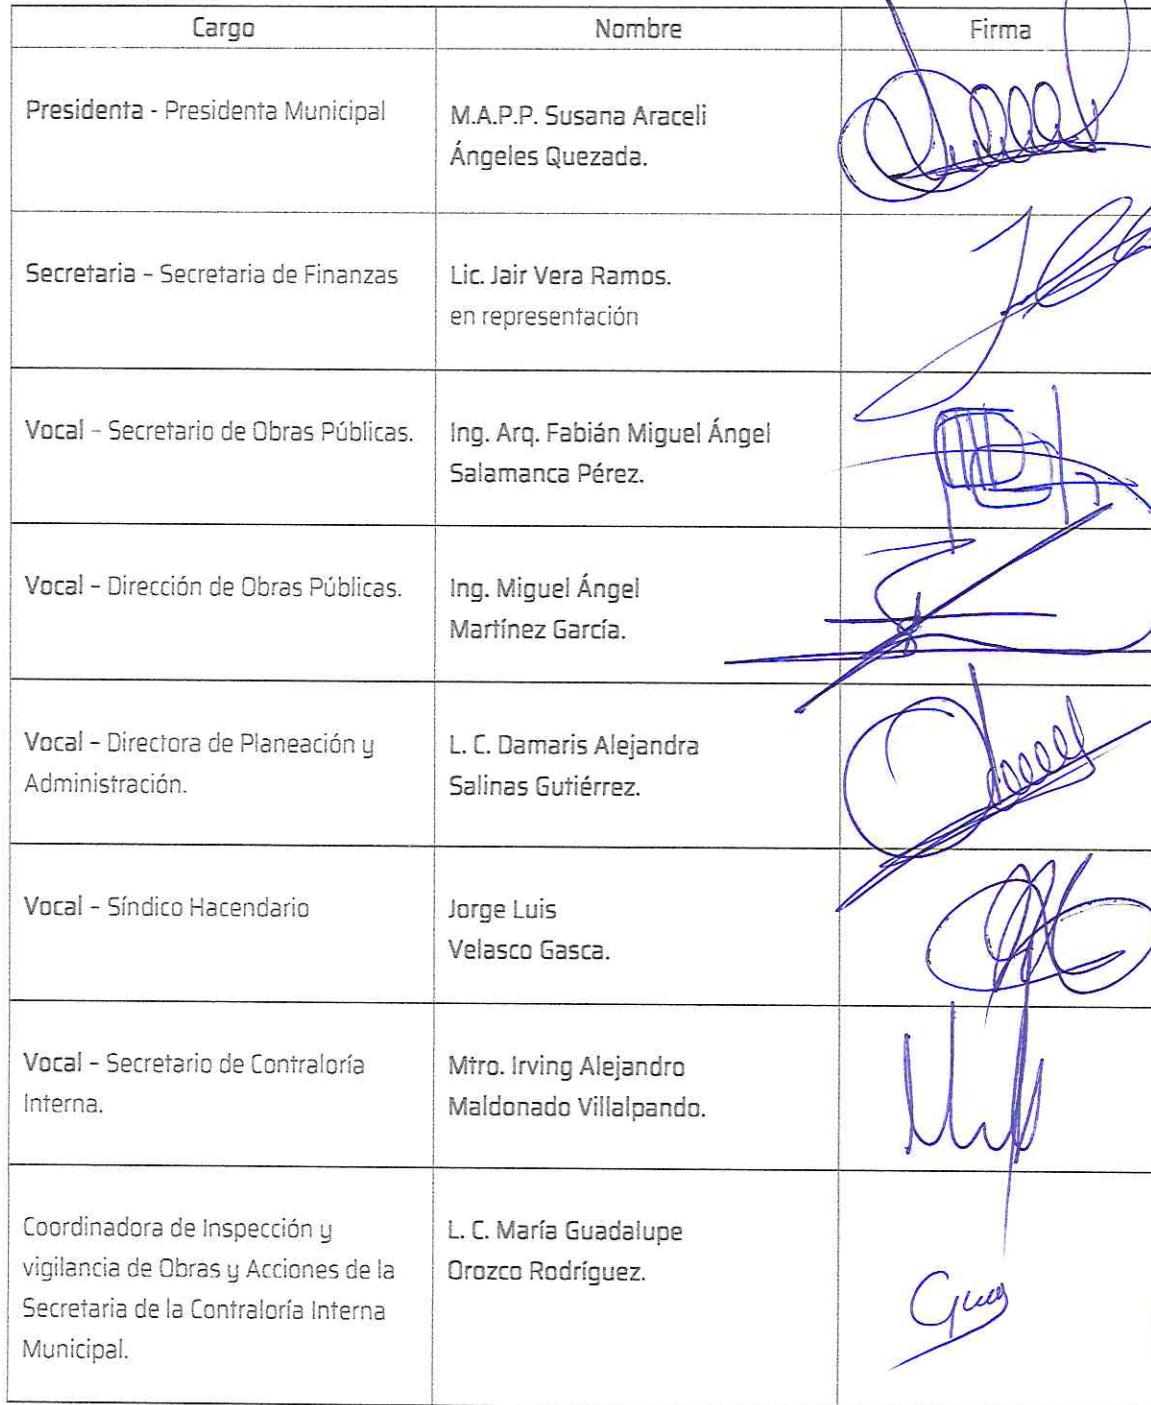 Cargo Nombre Firma
Presidenta - Presidenta Municipal
M.A.P.P. Susana Araceli
Ángeles Quezada.
Secretaria – Secretaria de Finanzas
Lic. Jair Vera Ramos.
en representación
Vocal – Secretario de Obras Públicas.
Ing. Arq. Fabián Miguel Ángel
Salamanca Pérez.
Vocal – Dirección de Obras Públicas.
Ing. Miguel Ángel
Martínez García.
Vocal – Directora de Planeación y
Administración.
L. C. Damaris Alejandra
Salinas Gutiérrez.
Vocal – Síndico Hacendario
Jorge Luis
Velasco Gasca.
Vocal – Secretario de Contraloría
Interna.
Mtro. Irving Alejandro
Maldonado Villalpando.
Coordinadora de Inspección y
vigilancia de Obras y Acciones de la
Secretaria de la Contraloría Interna
Municipal.
L. C. María Guadalupe
Orozco Rodríguez.